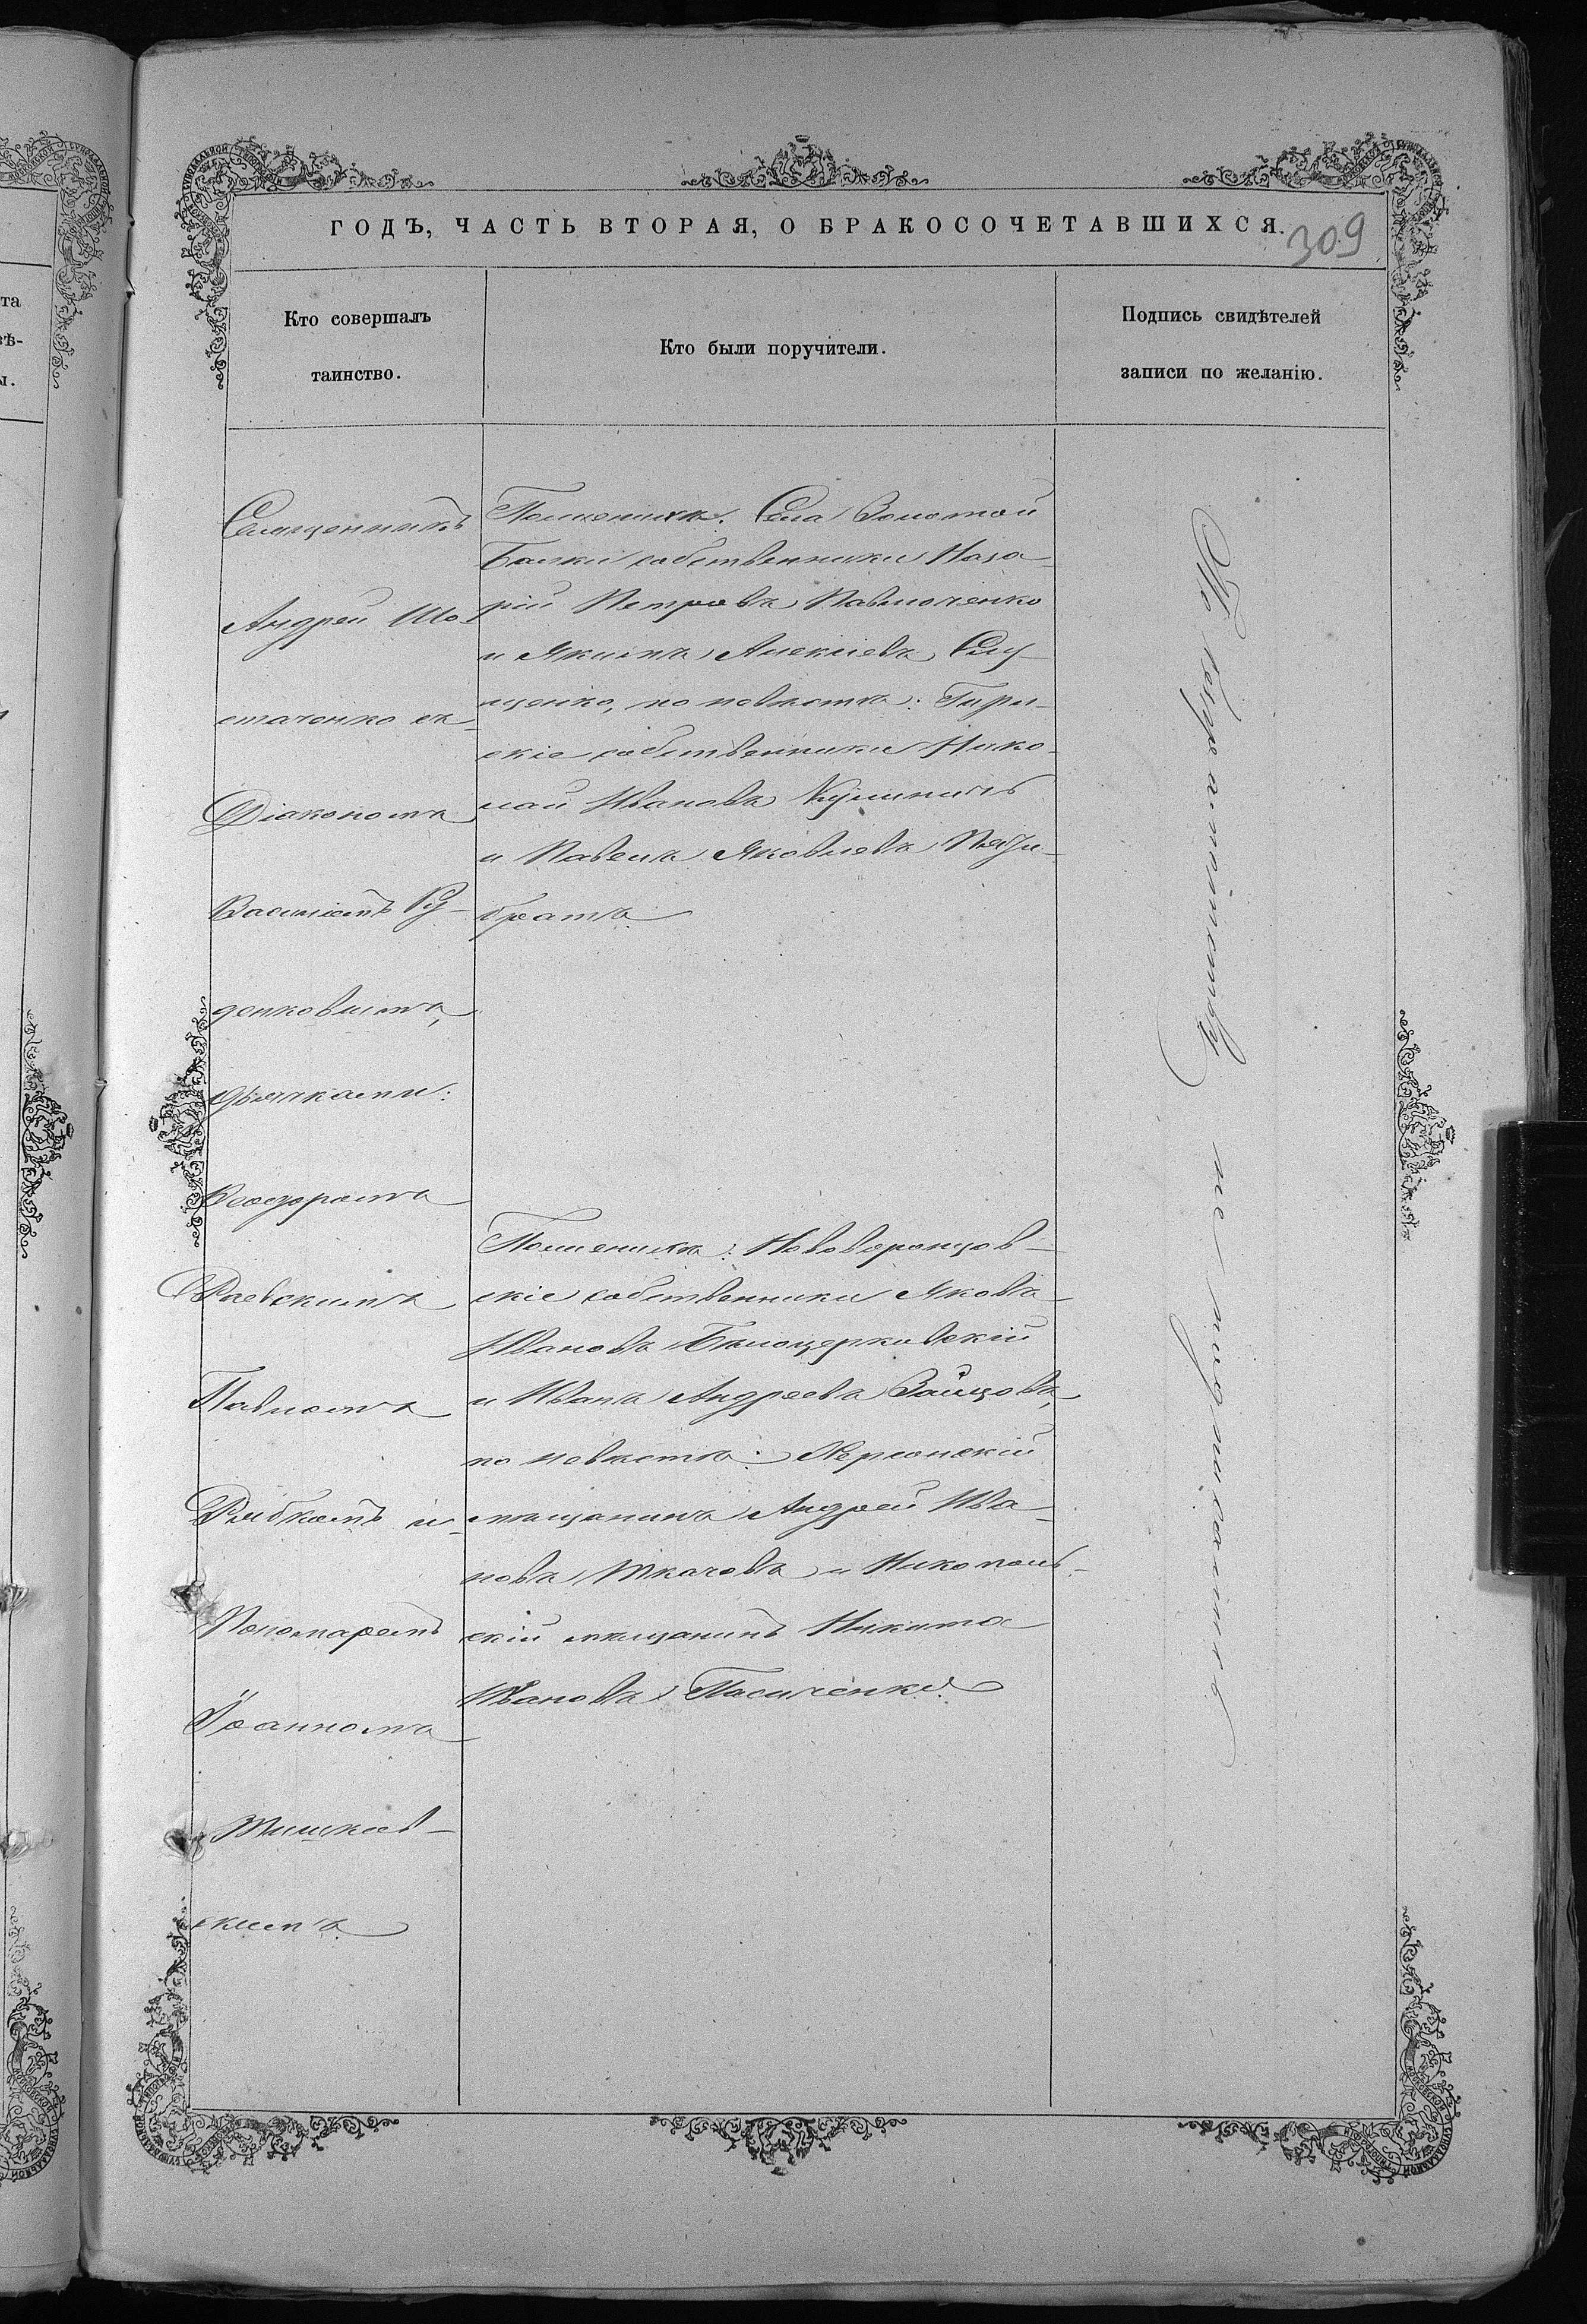 ГОДЪ, ЧАСТЬ ВТОРАЯ, О БРАКОСОЧЕТАВШИХСЯ.
309
Кто совершалъ
таинство.
Кто были поручители.
Подпись свидѣтелей
записи по желанію.
Священникъ
Андрей Шо-
стаченко съ
Діакономъ
Василіемъ Ру-
денковымъ,
дьячками:
Ѳеодоромъ
Раевскимъ
Павломъ
Рыбкомъ и
Пономаремъ
Іоанномъ
скимъ
По женихѣ: Села Золотой
Балки собственники Наза-
рій Петровъ Павлюченко
и Якимъ Алексіевъ Слу-
щенко, по невѣстѣ:
скіе собственники Нико-
лай Ивановъ
и Павелъ Яковлевъ
братъ
По женихѣ: Нововоронцов-
скіе собственники Яковъ
Ивановъ Бѣлоцерковскій
и Иванъ Андреевъ Зайцовъ,
по невѣстѣ: Херсонскій
мѣщанинъ Андрей Ива-
новъ Ткачовъ и Никополь-
скій мѣщанинъ Никита
Ивановъ Пасиченко
не